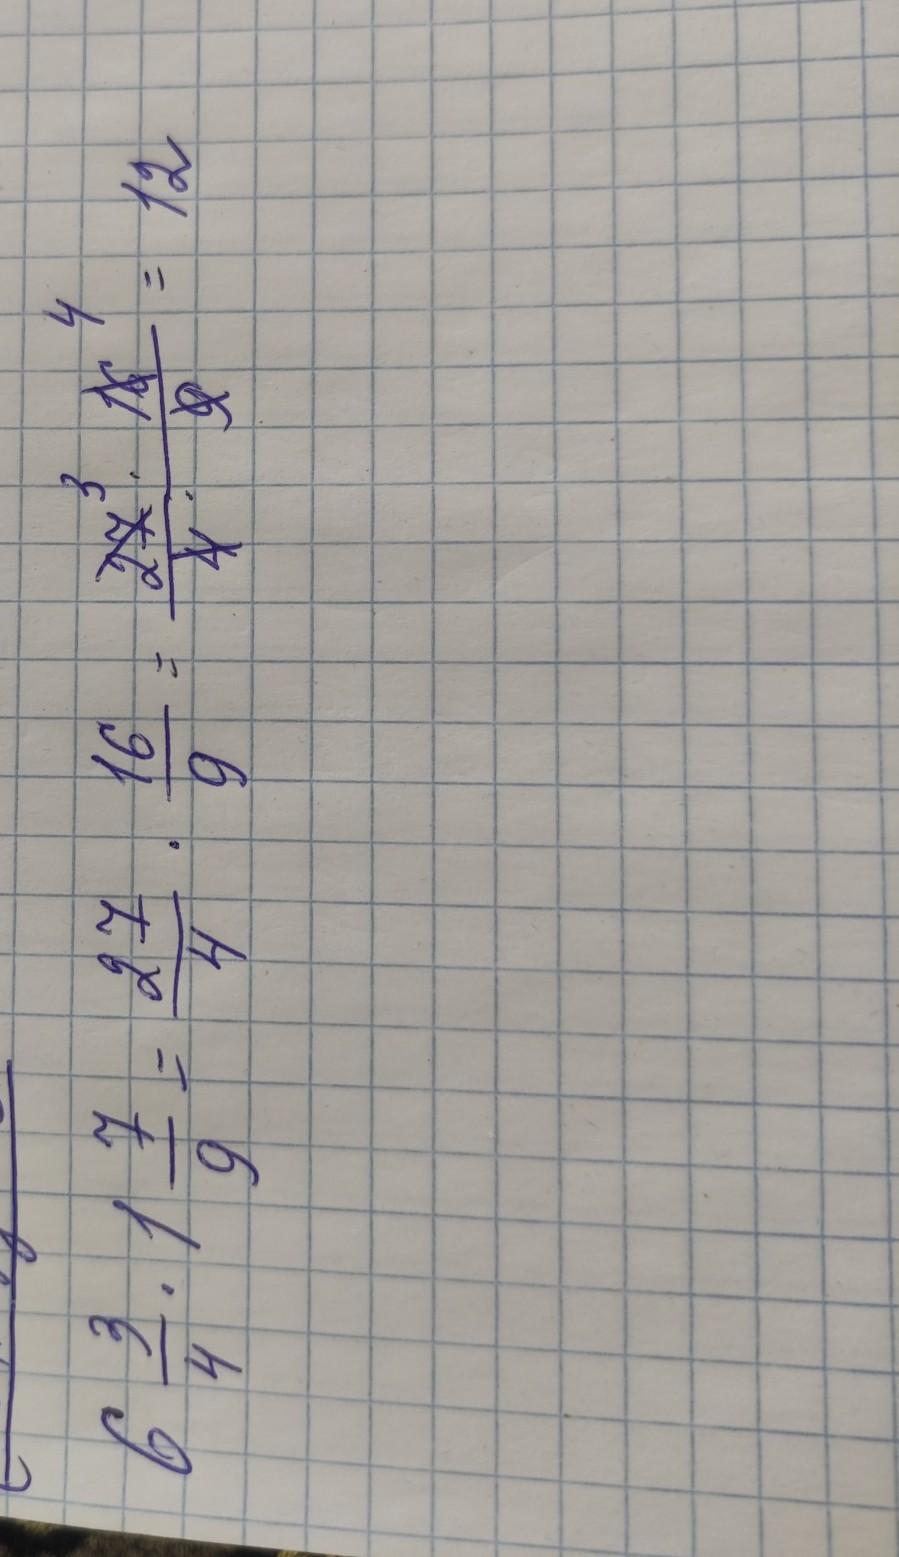 6 3/4 · 1 7/9 = 27/4 · 16/9 = 27 3 · 16 4 / 4 · 9 = 12